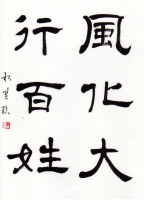 風化大
行百姓